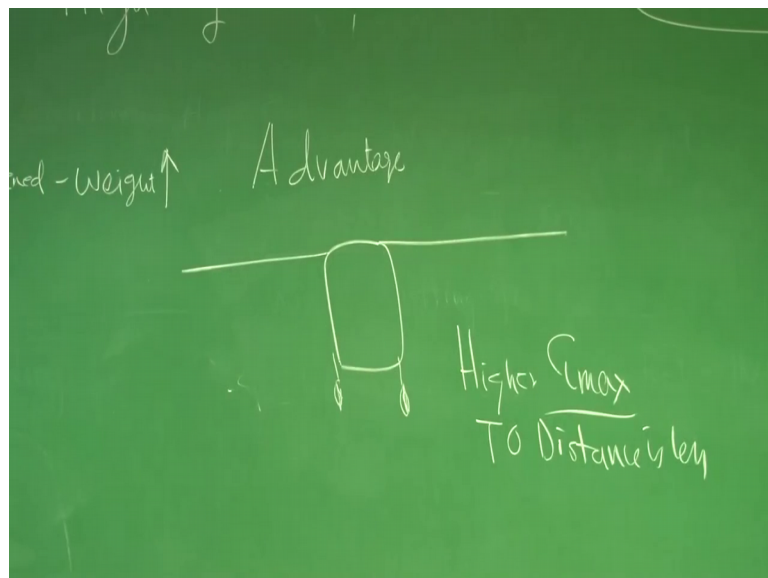 -weight↑
Advantage
Higher CLmax
TO Distance is less